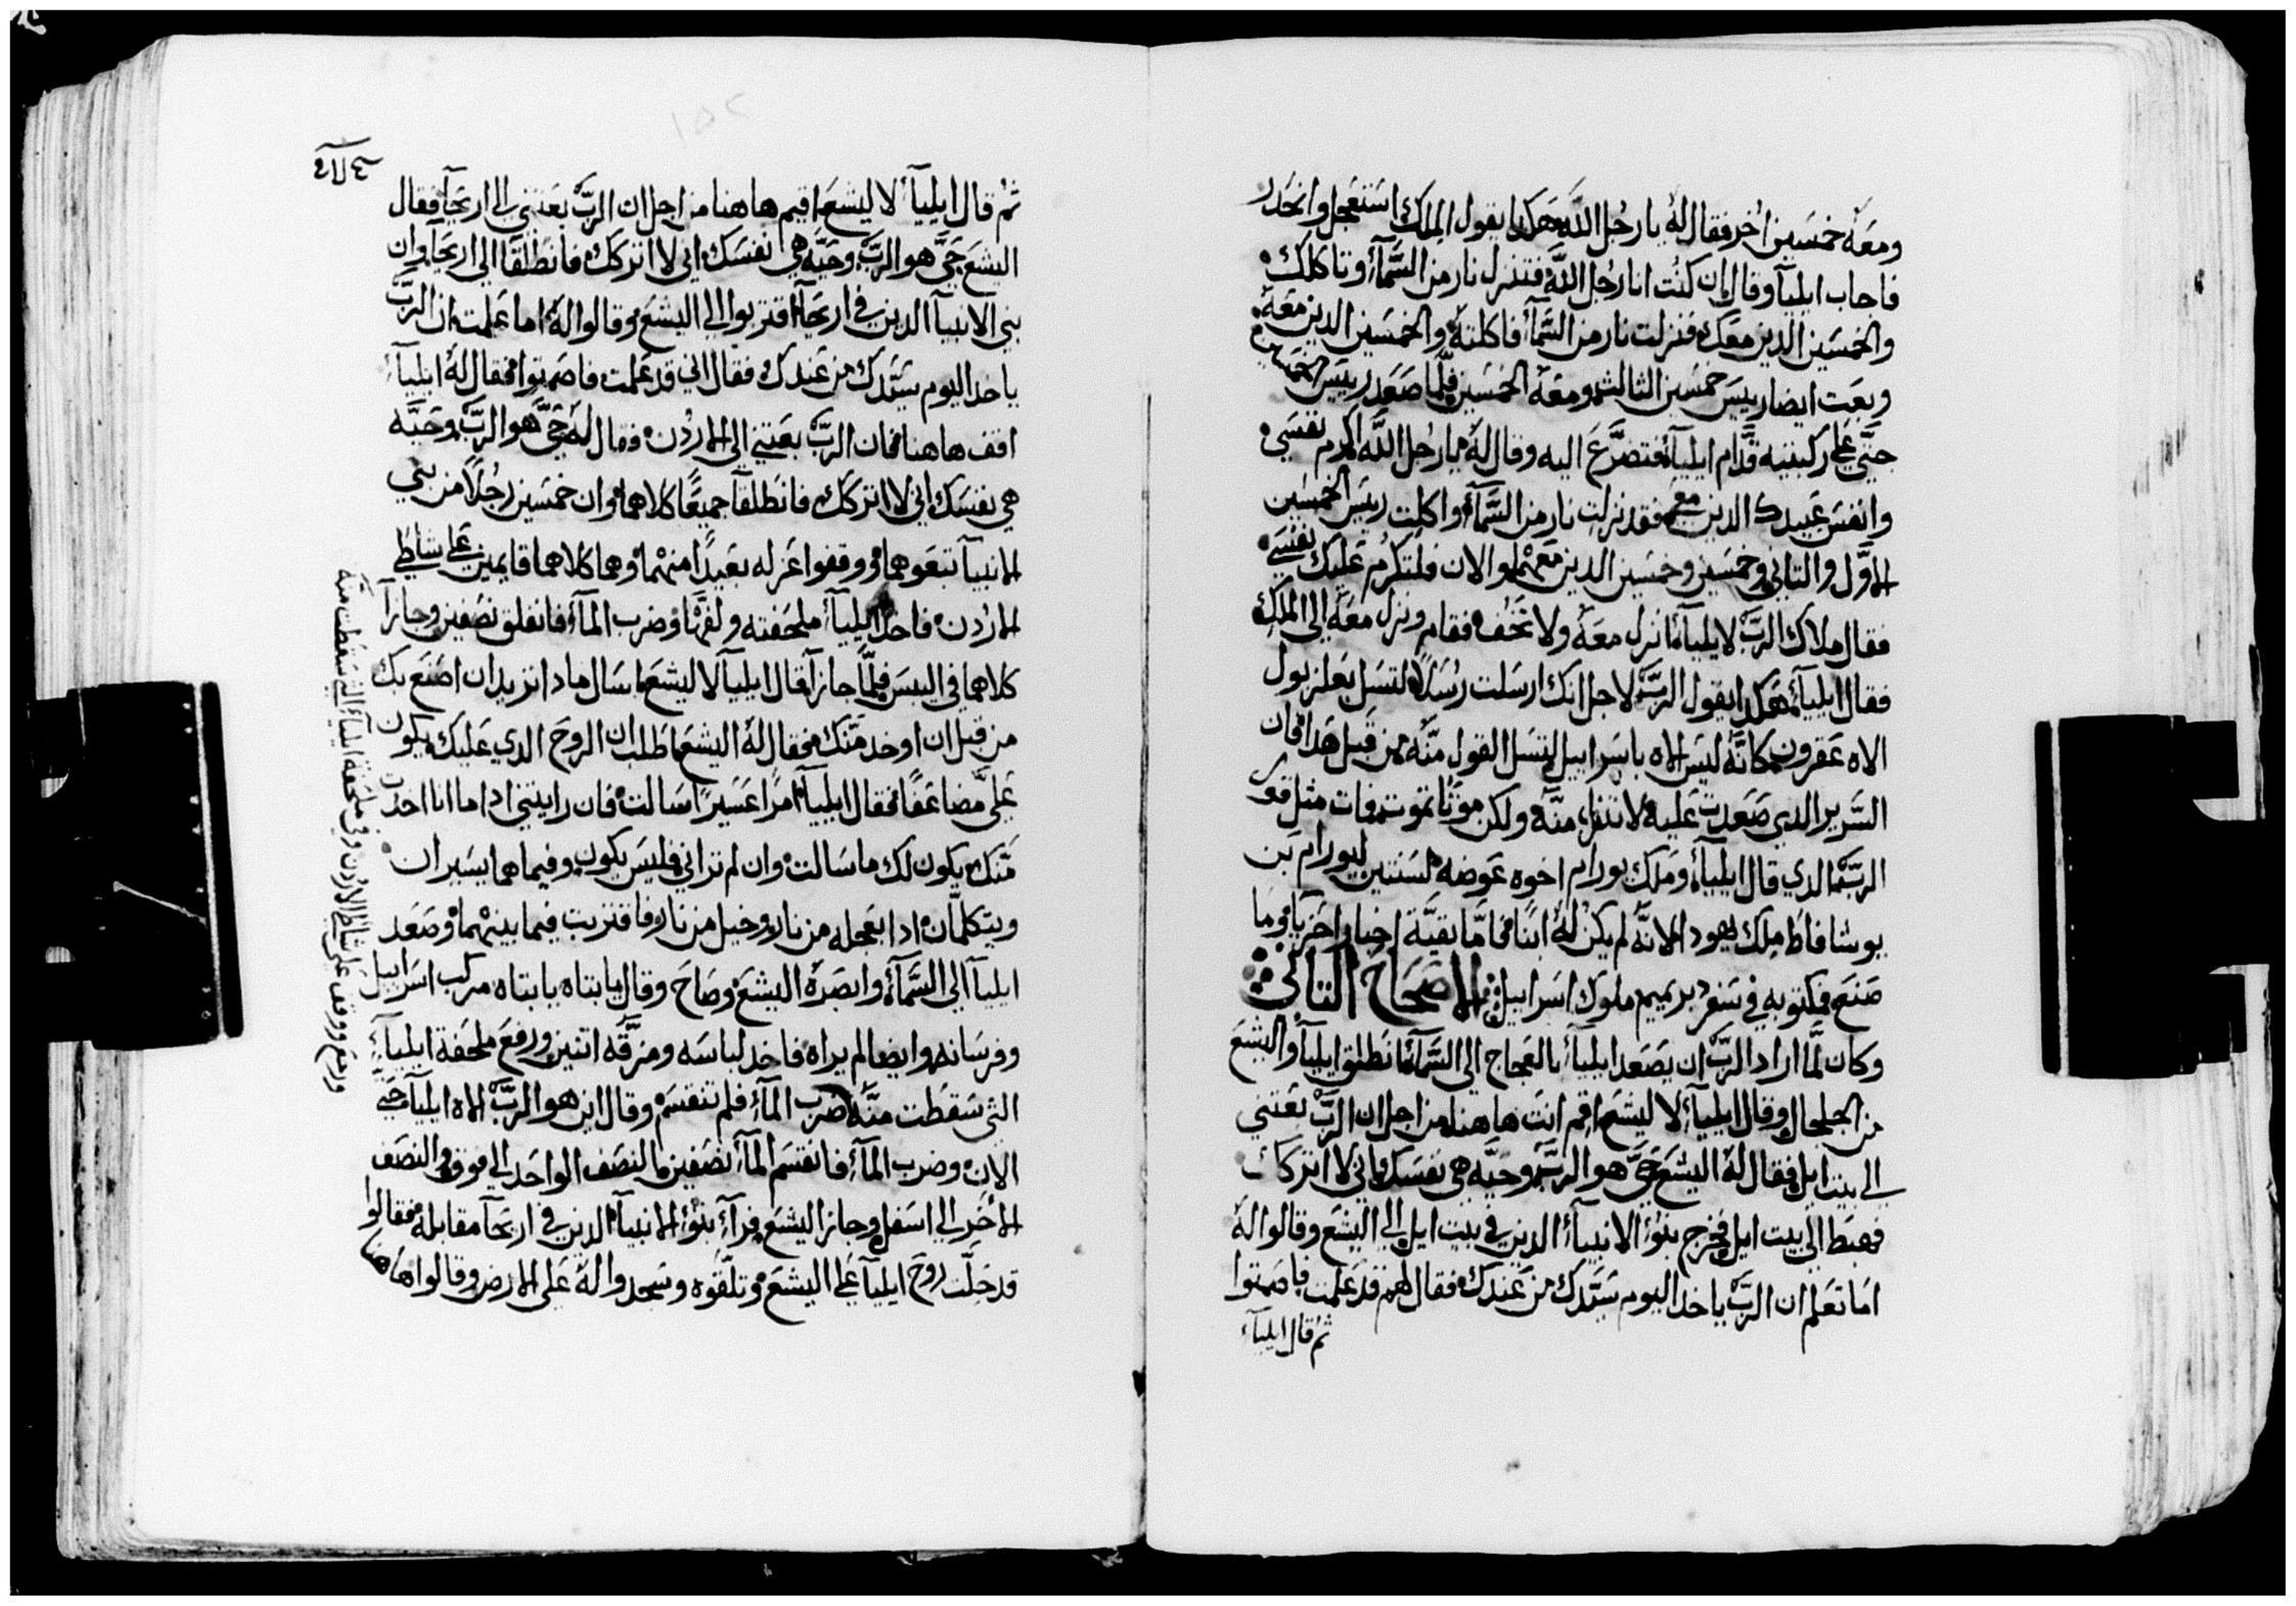 ومعه خمسين اخر فقال له يا رجل الله هكدا يقول الملك استعجل وانحدر
فاجاب ايليآ وقال ان كنت انا رجل الله فتنزل نار من السمآء وتاكلك
والخمسين الدين معك فنزلت نار من السمآء فاكلته والخمسين الدين معه
وبعت ايضا رييس خمسين الثالث ومعه الخمسين فلما صعد رييس الخمسين
جتي علي ركبتيه قدام ايليآء فتضرع اليه وقال له يا رجل الله اكرم نفسي
وانفس عبيدك الدين معي فقد نزلت نار من السمآء واكلت رييس الخمسين
الاول والتاني وخمسين وخمسين الدين معهم والان فلتكرم عليك نفسي
فقال ملاك الرب لايليآء انزل معه ولا تخف فقام ونزل معه الي الملك
فقال ايليآء هكدا يقول الرب لاجل انك ارسلت رسلا لتسل بعلزبول
الاه عقرون كانه ليس الاه باسراييل لتسل القول منه من قبل هدا فان
السرير الدي صعدت عليه لا تنزل منه ولكن موتا تموت فمات مثل قول
الرب الدي قال ايليآء وملك يورام اخوه عوضه لسنتين ليورام بن
يوشافاط ملك يهودا لانه لم يكن له ابنا فاما بقية اخبار احزيا وما
صنع فمكتوبه في سفر دبريميم ملوك اسراييل الاصحاح التاني
وكان لما اراد الرب ان يصعد ايليآء بالعجاج الي السمآء انطلق ايليآ واليشع
من الجلجال وقال ايليآء لاليشع اقم انت هاهنا من اجل ان الرب بعتني
الي بيت ايل فقال له اليشع حي هو الرب وحيه هي نفسك اني لا اتركك
فهبط الي بيت ايل فخرج بنوا الانبيآء الدين في بيت ايل الي اليشع وقالوا له
اما تعلم ان الرب ياخد اليوم سيدك من عندك فقال لهم قد علمت فاصمتوا
ثم قال ايليآء
ثم قال ايليآء لاليشع اقيم هاهنا من اجل ان الرب بعتني الي اريحآ فقال
اليشع حي هو الرب وحيه هي نفسك اني لا اتركك فانطلقا الي اريحآ وان
بني الانبيآ الدين في اريحآ اقتربوا الي اليشع وقالوا له اما علمت ان الرب
ياخد اليوم سيدك من عندك فقال اني قد علمت فاصمتوا فقال له ايليآء
اقف هاهنا فان الرب بعتني الي الاردن فقال له حي هو الرب وحيه
هي نفسك اني لا اتركك فانطلقا جميعا كلاهما وان خمسين رجلا من بني
الانبيآ تبعوهما ووقفوا عزله بعيدا منهما وهما كلاهما قايمين علي شاطي
الاردن فاخد ايليآء ملحفته ولفها وضرب المآء فانفلق نصفين وجازآ
كلاهما في اليبس فلما جازآ قال ايليآ لاليشع اسال مادا تريد ان اصنع بك
من قبل ان اوخد منك فقال له اليشع اطلب ان الروح الدي عليك يكون
علي مضاعفا فقال ايليآء امرا عسيرا سالت فان رايتني ادا ما انا اخدت
منك يكون لك ما سالت وان لم تراني فليس يكون وفيما هما يسيران
ويتكلمان ادا بعجله من نار وخيل من نار فاقتربت فيما بينهما وصعد
ايليآ الي السمآء وابصره اليشع وصاح وقال يا ابتاه يا ابتاه مركب اسراييل
وفرسانه وايضا لم يراه فاخد لباسه ومزقه اتنين ورفع ملحفة ايليآء
التي سقطت منه ضرب المآء فلم تنقسم وقال اين هو الرب الاه ايليآء حتي
الان وضرب المآء فانقسم المآء نصفين النصف الواحد الي فوق والنصف
الاخر الي اسفل وجاز اليشع فرآء بنوا الانبيآء الدين في اريحآ مقابله فقالوا
قد حلت روح ايليآ علي اليشع وتلقوه وسجدوا له علي الارض وقالوا هاهنا
ورجع ووقف علي شاطي الاردن وفي ملحفة ايليآء التي سقطت منه